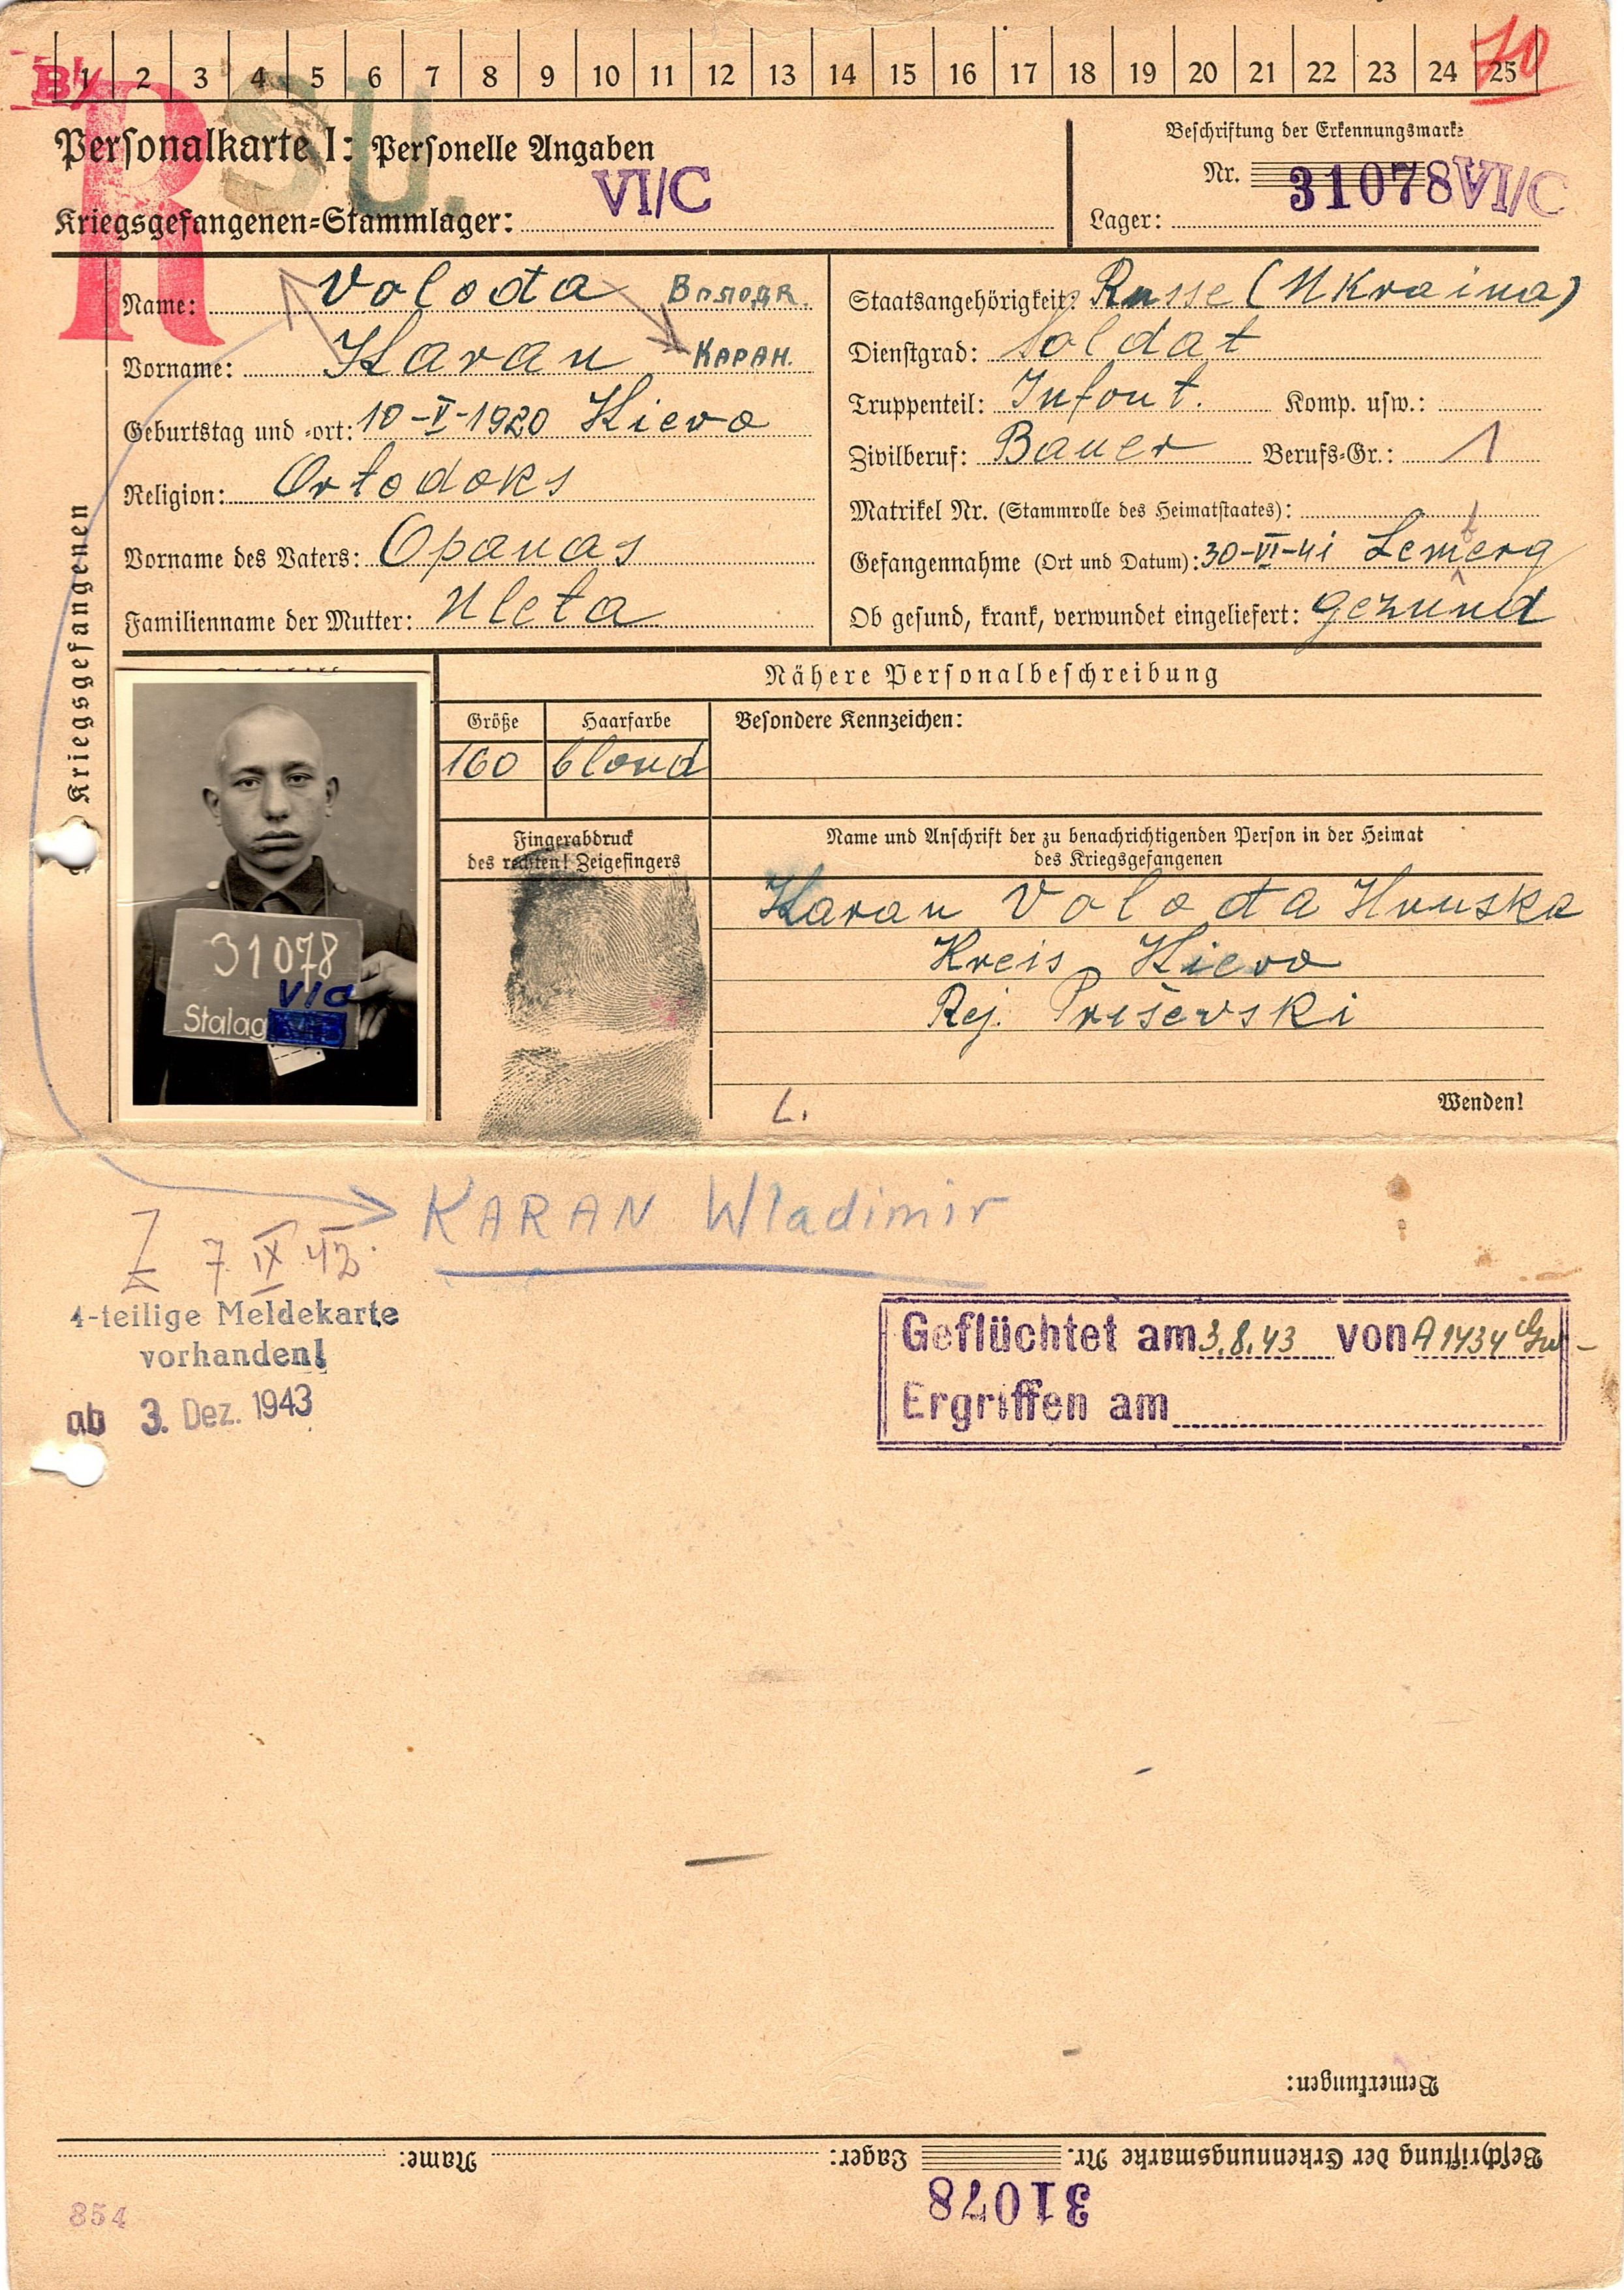 B1/
70
1 2 3 4 5 6 7 8 9 10 11 12 13 14 15 16 17 18 19 20 21 22 23 24 25
R
SU.
Personalkarte I: Personelle Angaben
Kriegsgefangenen-Stammlager: VI/C
Beschriftung der Erkennungsmarke
Nr. 31078 VI/C
Lager:
Name: Voloďa Володя.
Vorname: Karan КАРАН.
Geburtstag und -ort: 10-V-1920 Kievo
Religion: Ortodoks
Vorname des Vaters: Opanas
Familienname der Mutter: Uleta
Staatsangehörigkeit: Russe (Ukraina)
Dienstgrad: Soldat
Truppenteil: Infont. Komp. usw.:
Zivilberuf: Bauer Berufs-Gr.: 1
Matrikel Nr. (Stammrolle des Heimatstaates):
Gefangennahme (Ort und Datum): 30-VI-41 Lemberg
Ob gesund, krank, verwundet eingeliefert: gezund
Kriegsgefangenen
Nähere Personalbeschreibung
Größe Haarfarbe Besondere Kennzeichen:
160 blond
31078
VIC
Stalag
Fingerabdruck
des rechten! Zeigefingers
Name und Anschrift der zu benachrichtigenden Person in der Heimat
des Kriegsgefangenen
Karan Voloďa Hruska
Kreis Kievo
Rej. Priševski
Wenden!
L.
KARAN Wladimir
7 IX 42.
4-teilige Meldekarte
vorhanden!
ab 3. Dez. 1943
Geflüchtet am 3.8.43 von A 1434
Ergriffen am
Bemerkungen:
Beschriftung der Erkennungsmarke Nr. Lager: Name:
31078
854